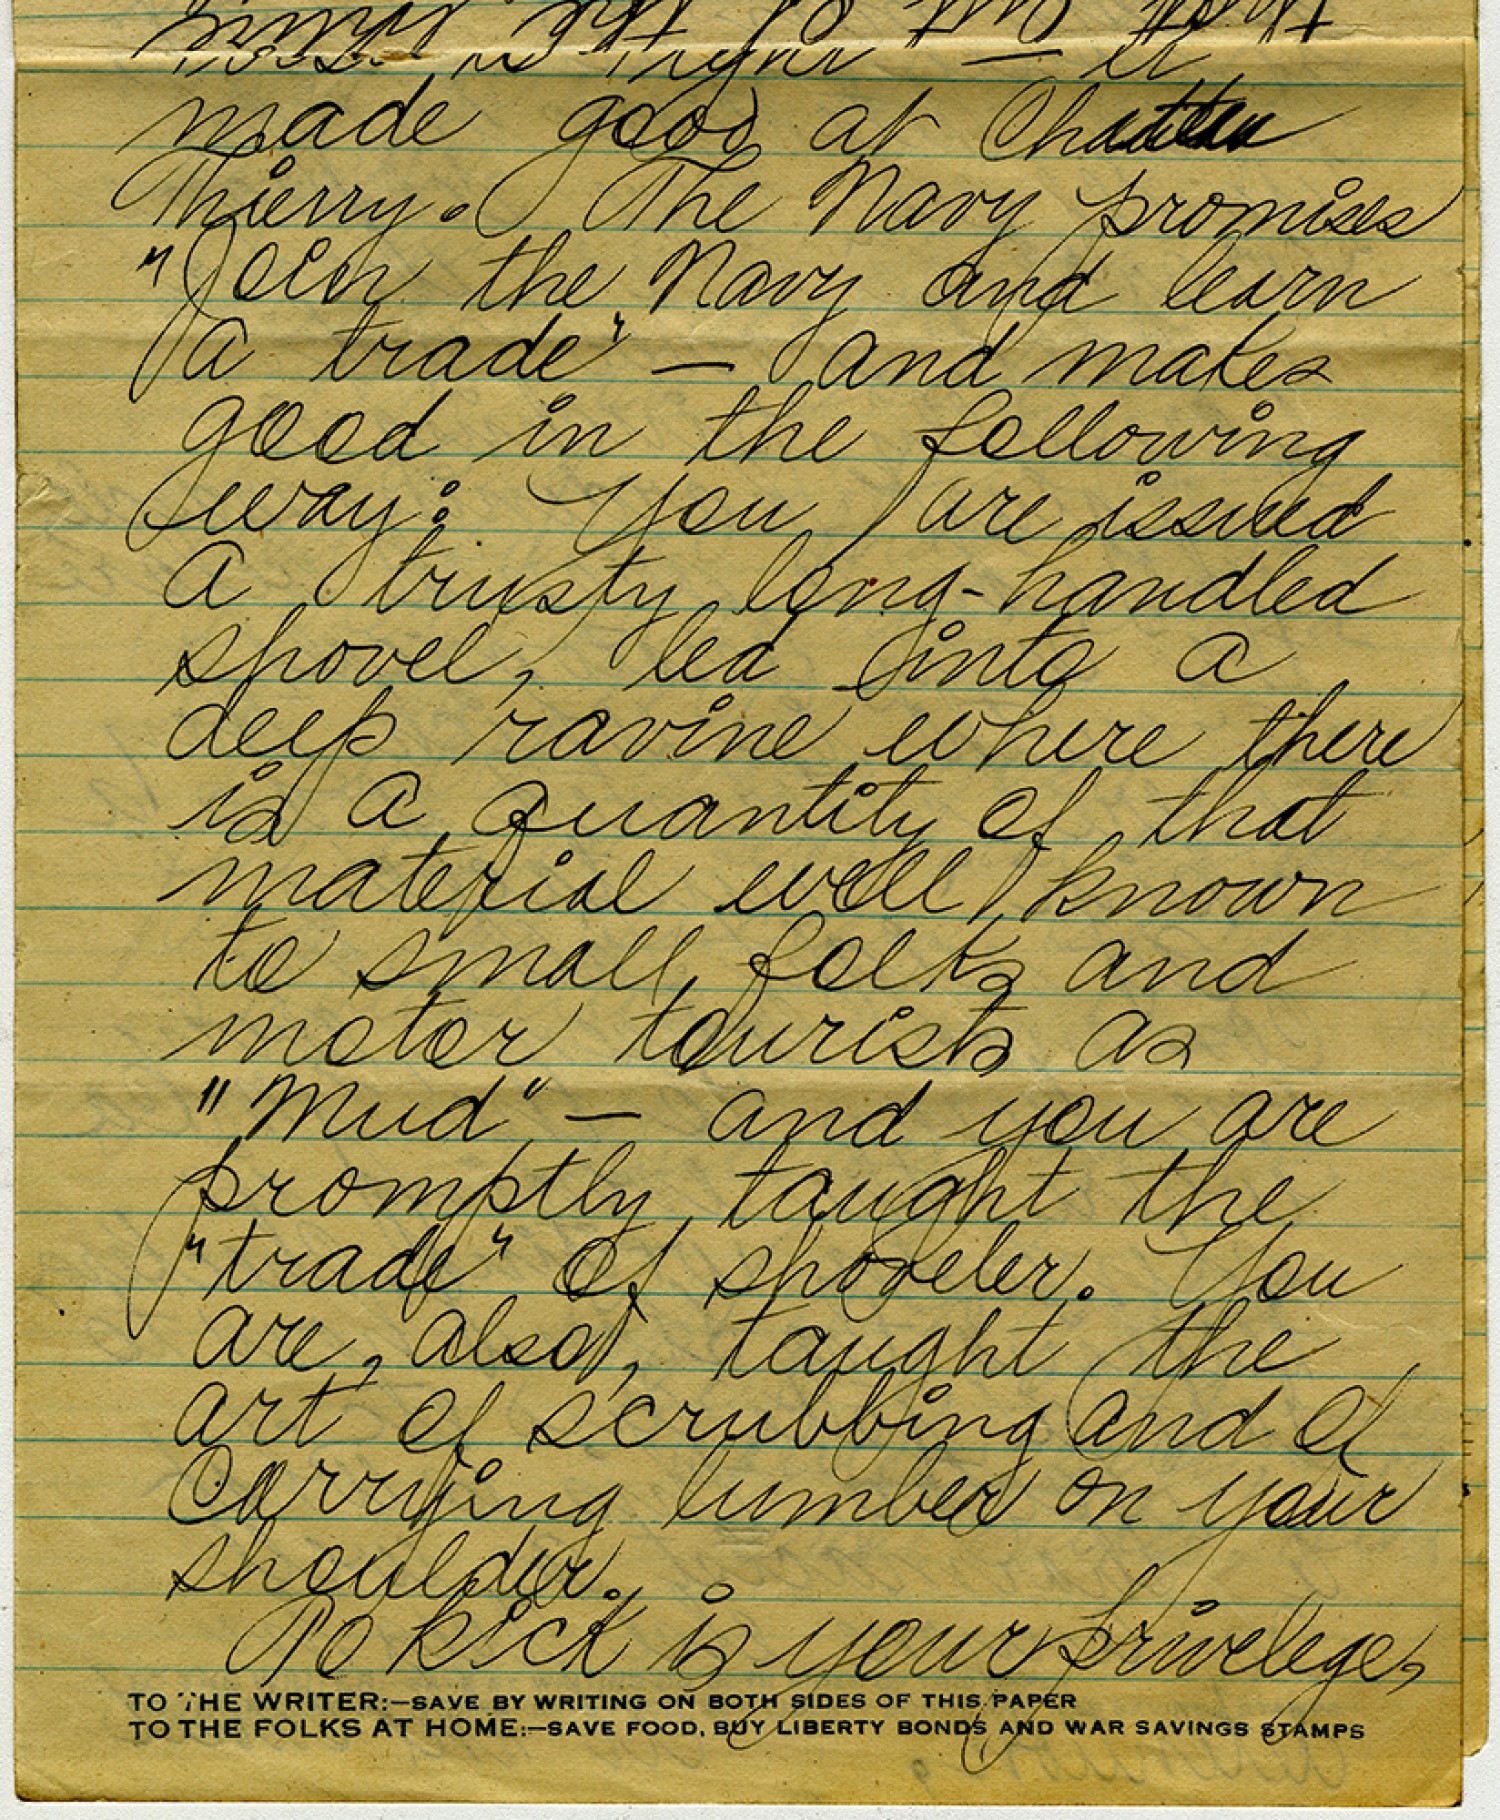 is right — it
made good at Chateau
Thierry. The Navy promises
"Join the Navy and learn
a trade" — and makes
good in the following
way: You are issued
a trusty long-handled
shovel, led into a
deep ravine where there
is a quantity of that
material well known
to small folks and
motor tourists as
"Mud" — and you are
promptly taught the
"trade" of shoveler. You
are, also, taught the
art of scrubbing and of
carrying lumber on your
shoulder.
To kick is your privelege,
TO THE WRITER:—SAVE BY WRITING ON BOTH SIDES OF THIS PAPER
TO THE FOLKS AT HOME:—SAVE FOOD, BUY LIBERTY BONDS AND WAR SAVINGS STAMPS